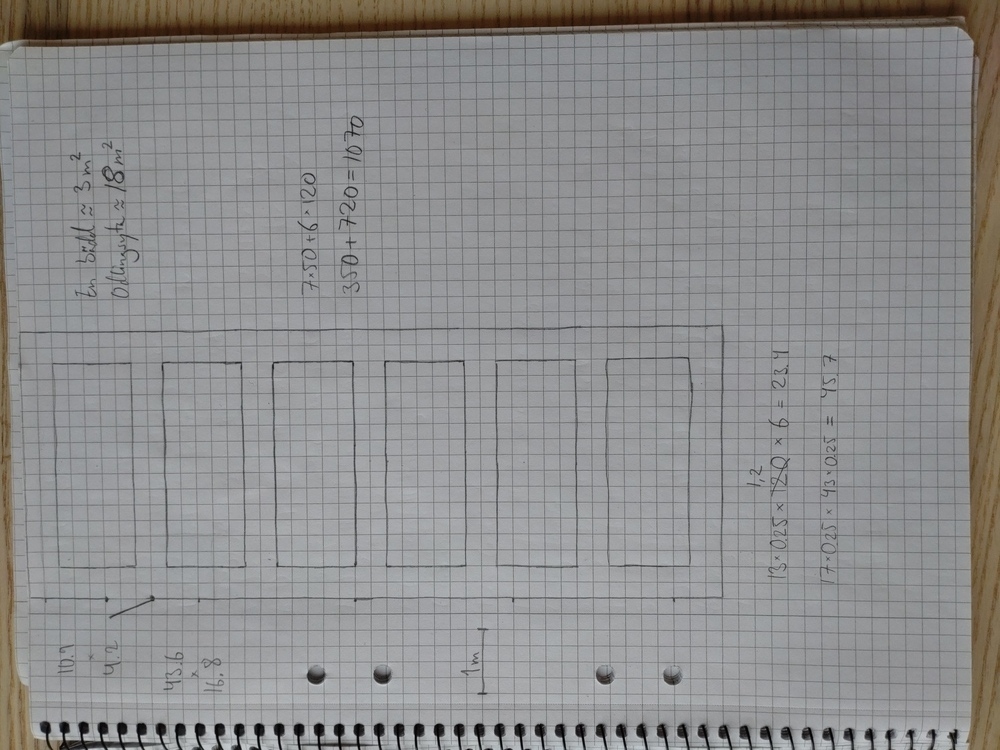 10.9
×
4.2
43.6
×
16.8
En bädd ≈ 3 m²
Odlingsyta ≈ 18 m²
7×50+6×120
350+720=1070
1m
1,2
13×0.25×120×6 = 23.4
17×0.25×43×0.25 = 45.7